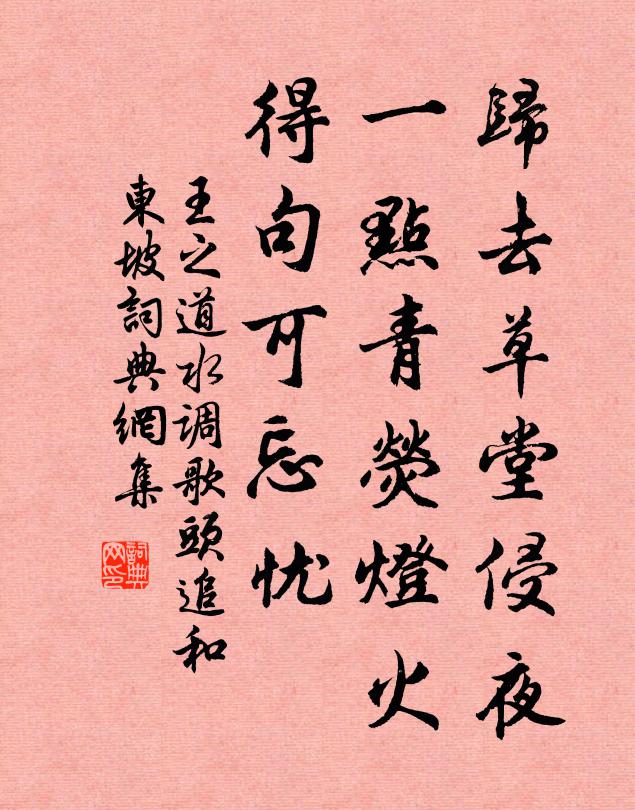 歸去草堂侵夜
一點青熒燈火
得句可忘忧
王之道水调歌頭追和
東坡詞典網集
詞典网印